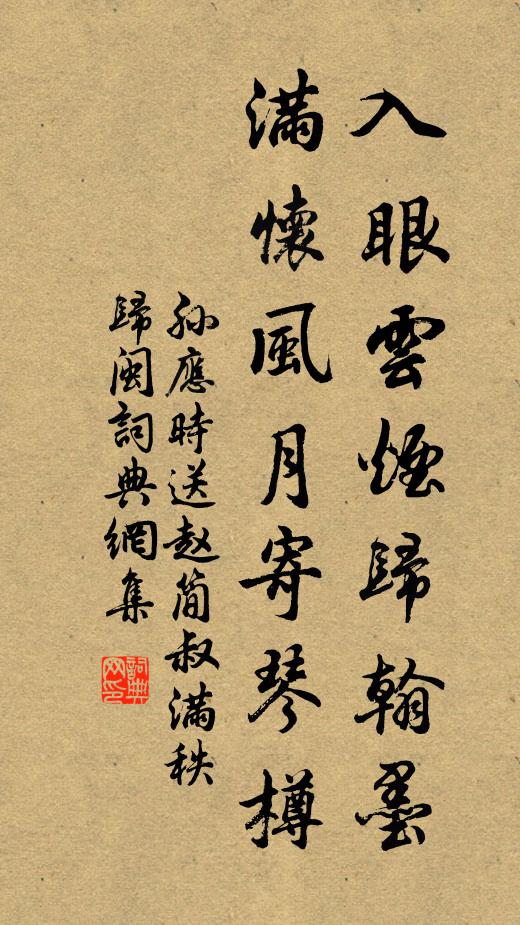 入眼雲煙歸翰墨
滿懷風月寄琴樽
孙應時送赵简叔满秩
歸闽詞典網集
詞典网印